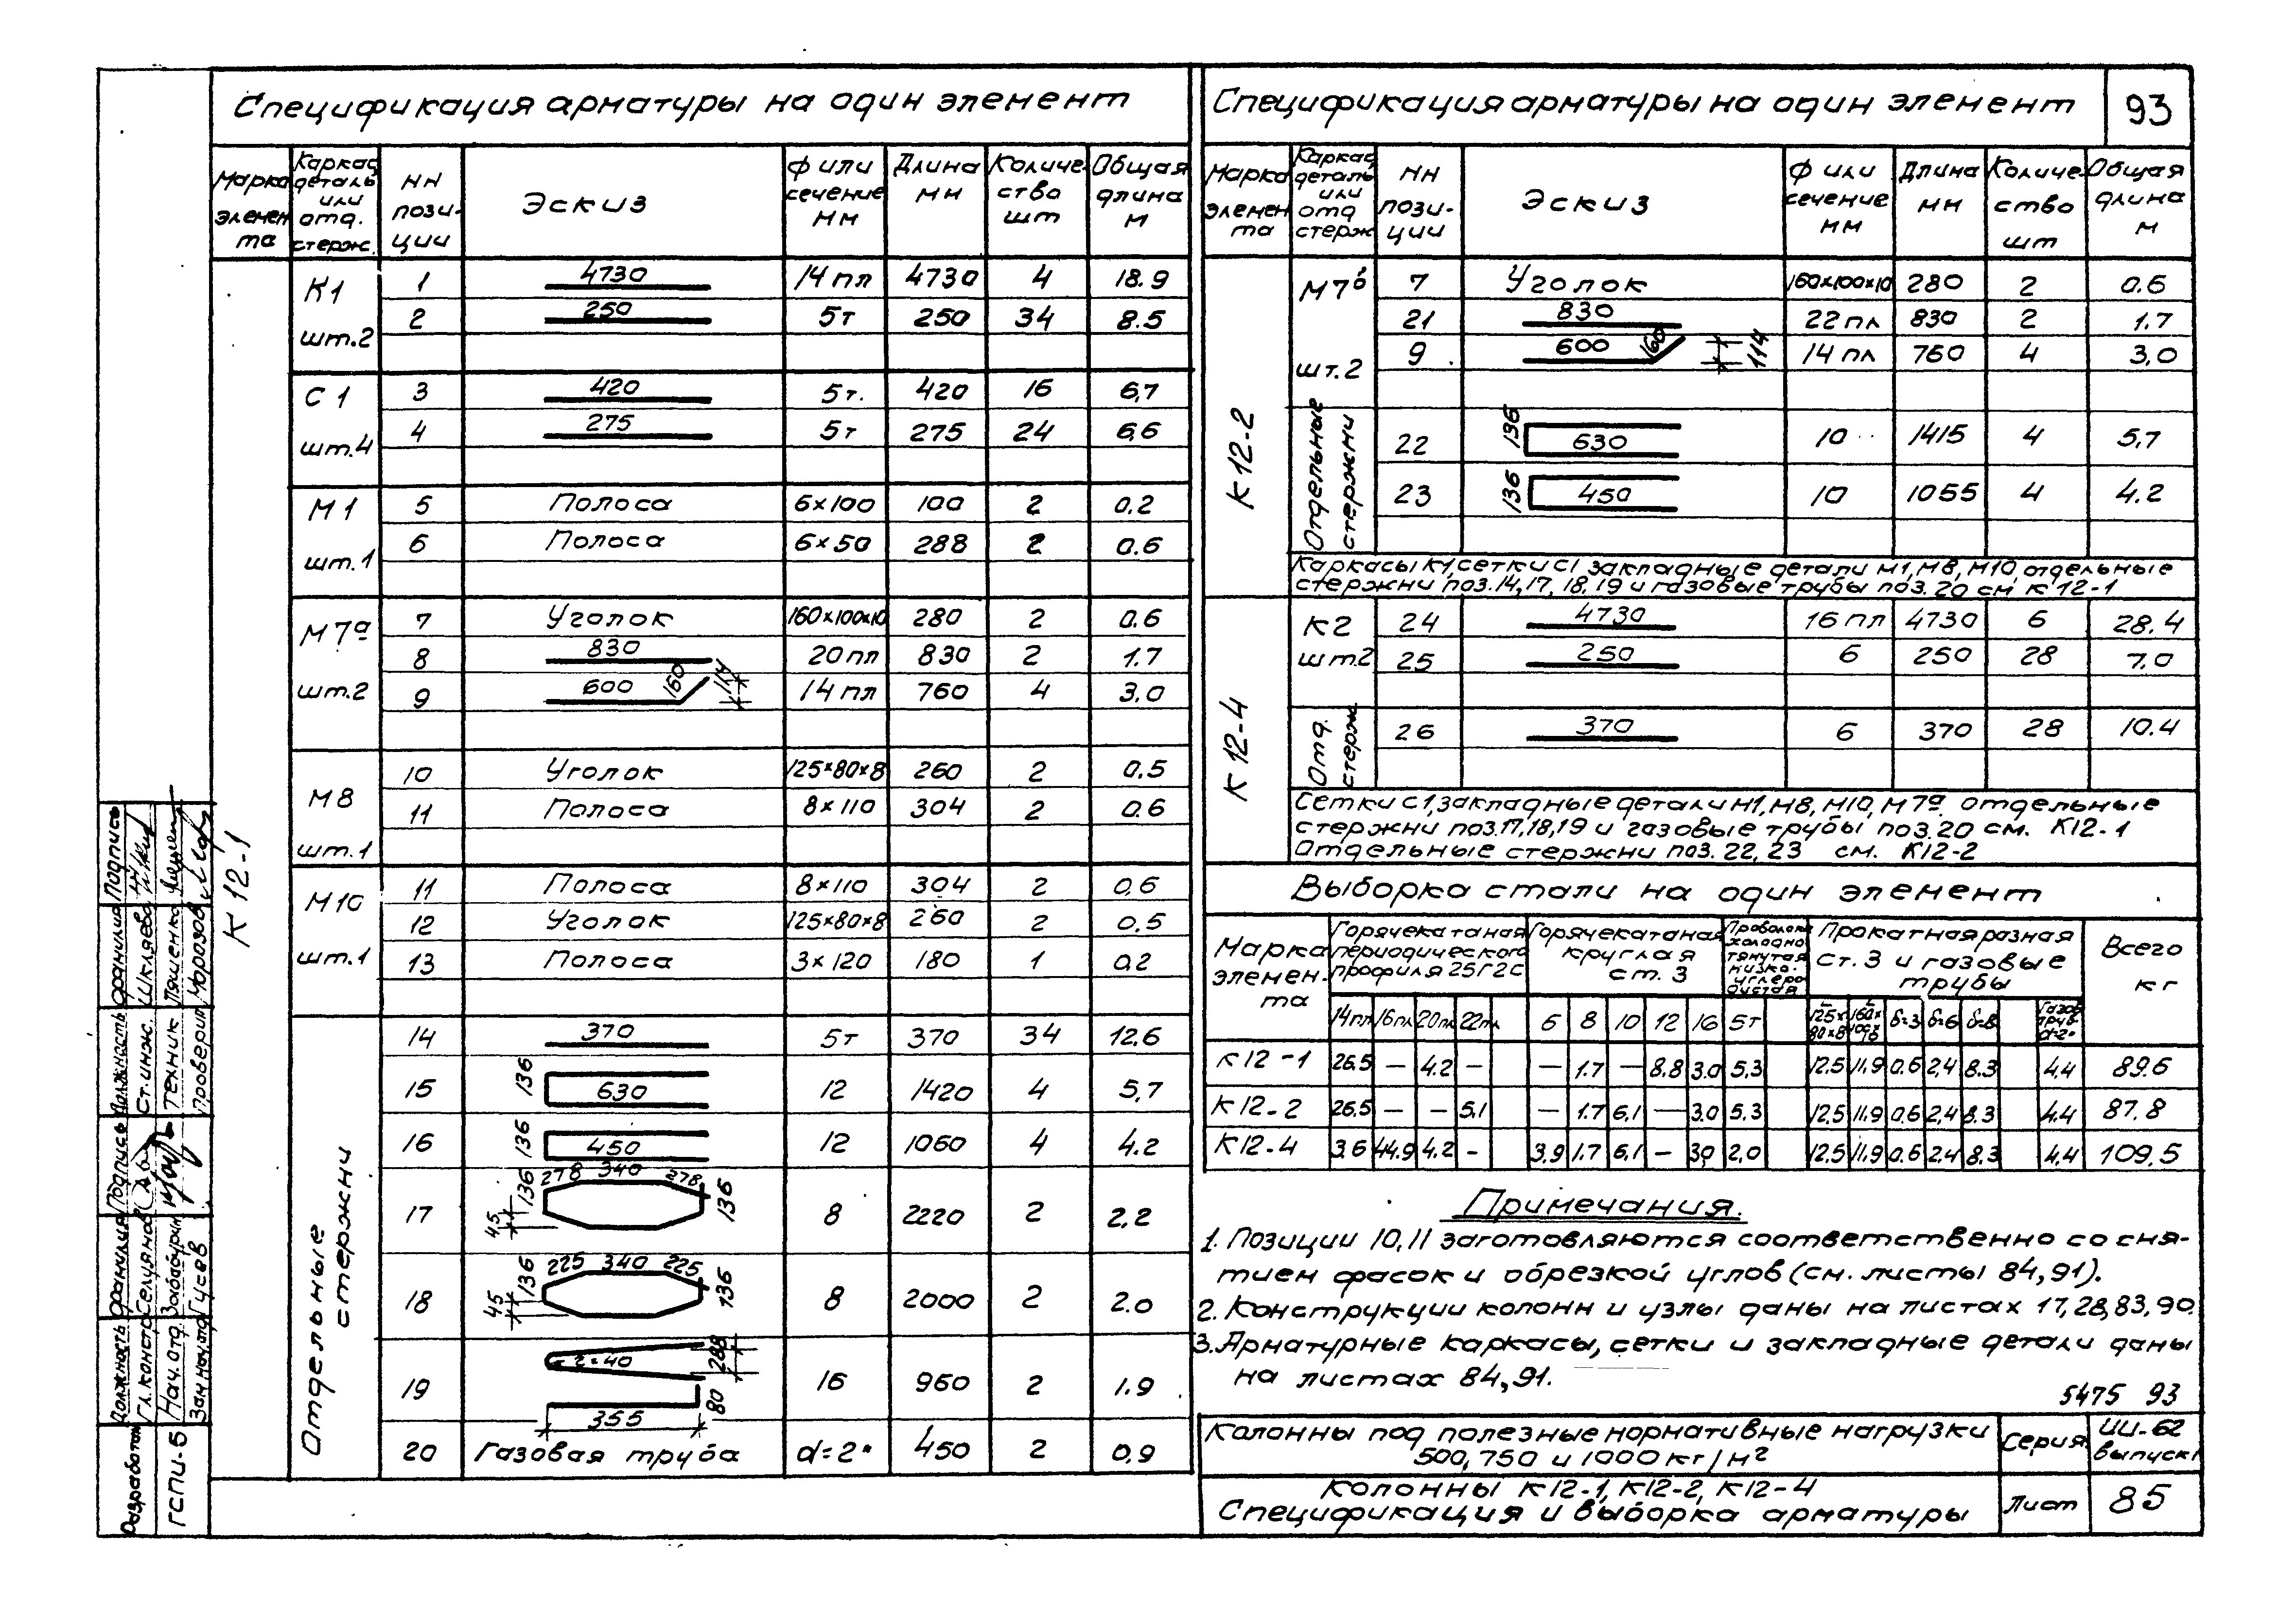 Спецификация арматуры на один элемент
Марка элемента | Каркас, деталь или отд. стерж. | НН позиции | Эскиз | Ф или сечение мм | Длина мм | Количество шт | Общая длина м
К 12-1
К1 шт.2
1 | 4730 | 14 пл | 4730 | 4 | 18.9
2 | 250 | 5т | 250 | 34 | 8.5
С1 шт.4
3 | 420 | 5т. | 420 | 16 | 6,7
4 | 275 | 5т | 275 | 24 | 6,6
М1 шт.1
5 | Полоса | 6×100 | 100 | 2 | 0.2
6 | Полоса | 6×50 | 288 | 2 | 0.6
М7а шт.2
7 | Уголок | 160×100×10 | 280 | 2 | 0.6
8 | 830 | 20 пл | 830 | 2 | 1.7
9 | 600 160 114 | 14 пл | 760 | 4 | 3.0
М8 шт.1
10 | Уголок | 125×80×8 | 260 | 2 | 0.5
11 | Полоса | 8×110 | 304 | 2 | 0.6
М10 шт.1
11 | Полоса | 8×110 | 304 | 2 | 0.6
12 | Уголок | 125×80×8 | 260 | 2 | 0.5
13 | Полоса | 3×120 | 180 | 1 | 0.2
Отдельные стержни
14 | 370 | 5т | 370 | 34 | 12.6
15 | 136 630 | 12 | 1420 | 4 | 5,7
16 | 136 450 | 12 | 1060 | 4 | 4.2
17 | 45 136 278 340 278 136 | 8 | 2220 | 2 | 2.2
18 | 45 136 225 340 225 136 | 8 | 2000 | 2 | 2.0
19 | r=40 288 355 80 | 16 | 960 | 2 | 1.9
20 | Газовая труба | d=2" | 450 | 2 | 0,9
Спецификация арматуры на один элемент
93
Марка элемента | Каркас, деталь или отд стерж | НН позиции | Эскиз | Ф или сечение мм | Длина мм | Количество шт | Общая длина м
К 12-2
М7б шт.2
7 | Уголок | 160×100×10 | 280 | 2 | 0.6
21 | 830 | 22 пл | 830 | 2 | 1.7
9 | 600 160 114 | 14 пл | 760 | 4 | 3,0
Отдельные стержни
22 | 136 630 | 10 | 1415 | 4 | 5,7
23 | 136 450 | 10 | 1055 | 4 | 4.2
Каркасы К1, сетки С1 закладные детали М1, М8, М10, отдельные
стержни поз.14,17, 18, 19 и газовые трубы поз. 20 см К 12-1
К 12-4
К2 шт.2
24 | 4730 | 16 пл | 4730 | 6 | 28.4
25 | 250 | 6 | 250 | 28 | 7.0
Отд. стерж.
26 | 370 | 6 | 370 | 28 | 10.4
Сетки С1, закладные детали М1, М8, М10, М7а отдельные
стержни поз.17,18,19 и газовые трубы поз.20 см. К12-1
Отдельные стержни поз. 22, 23 см. К12-2
Выборка стали на один элемент
Марка элемента | Горячекатаная периодического профиля 25Г2С | Горячекатаная круглая ст. 3 | Проволока холоднотянутая низкоуглеродистая | Прокатная разная ст. 3 и газовые трубы | Всего кг
14пл | 16пл | 20пл | 22пл | 6 | 8 | 10 | 12 | 16 | 5т | L 125×80×8 | L 160×100×10 | δ=3 | δ=6 | δ=8 | Газов. труб. d=2"
К12-1 | 26.5 | — | 4.2 | — | — | 1.7 | — | 8.8 | 3.0 | 5.3 | 12.5 | 11.9 | 0.6 | 2,4 | 8.3 | 4,4 | 89.6
К12-2 | 26.5 | — | — | 5.1 | — | 1.7 | 6,1 | — | 3.0 | 5.3 | 12.5 | 11.9 | 0.6 | 2,4 | 8.3 | 4.4 | 87.8
К12-4 | 3.6 | 44.9 | 4.2 | - | 3,9 | 1.7 | 6,1 | — | 3,0 | 2,0 | 12.5 | 11.9 | 0.6 | 2.4 | 8.3 | 4,4 | 109.5
Примечания.
1. Позиции 10, 11 заготовляются соответственно со сня-
тием фасок и обрезкой углов (см. листы 84, 91).
2. Конструкции колонн и узлы даны на листах 17, 28, 83, 90.
3. Арматурные каркасы, сетки и закладные детали даны
на листах 84, 91.
5475 93
Колонны под полезные нормативные нагрузки
500, 750 и 1000 кг/м2
Серия
ИИ-62
выпуск 1
Колонны К12-1, К12-2, К12-4
Спецификация и выборка арматуры
Лист
85
Разработан
ГСПИ-5
Должность | Фамилия | Подпись | Должность | Фамилия | Подпись
Гл. констр. | Селуянов | Ст. инж. | Шкляева
Нач. отд. | Забабурин | Техник | Ляшенко
Зам нач отд | Гусев | Проверил | Морозов